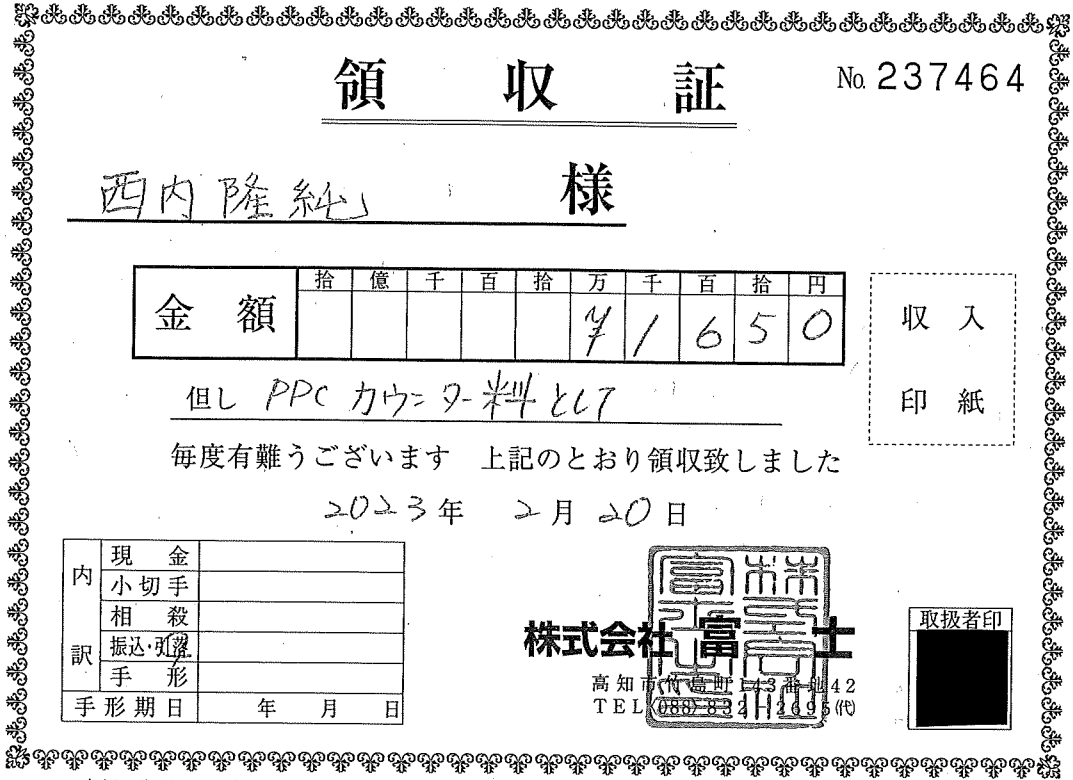 領収証
No. 237464
西内隆純 様
金額
拾 億 千 百 拾 万 千 百 拾 円
¥ 1 6 5 0
収入
印紙
但し PPCカウンター料として
毎度有難うございます 上記のとおり領収致しました
2023年 2月 20日
内訳
現金
小切手
相殺
振込・引落
手形
手形期日 年 月 日
株式会社 富士
高知市竹島町143番地42
TEL(088)832-2695(代)
取扱者印